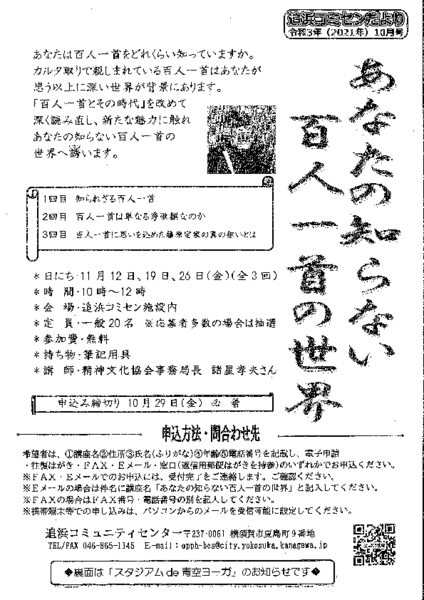 追浜コミセンだより
令和3年（2021年）10月号
あなたの知らない
百人一首の世界
あなたは百人一首をどれくらい知っていますか。
カルタ取りで親しまれている百人一首はあなたが
思う以上に深い世界が背景にあります。
「百人一首とその時代」を改めて
深く読み直し、新たな魅力に触れ
あなたの知らない百人一首の
世界へ誘います。
1回目 知られざる百人一首
2回目 百人一首は単なる秀歌撰なのか
3回目 百人一首に思いを込めた藤原定家の真の狙いとは
＊日にち・11月12日、19日、26日(金)(全3回)
＊時 間・10時～12時
＊会 場・追浜コミセン施設内
＊定 員・一般20名 ※応募者多数の場合は抽選
＊参加費・無料
＊持ち物・筆記用具
＊講 師・精神文化協会事務局長 諸星孝夫さん
申込み締切り 10月29日(金) 必着
申込方法・問合わせ先
希望者は、①講座名②住所③氏名(ふりがな)④年齢⑤電話番号を記載し、電子申請
・往復はがき・FAX・Eメール・窓口(返信用郵便はがきを持参)のいずれかでお申込ください。
※FAX・Eメールでのお申込には、受付完了をご連絡します。ご確認ください。
※Eメールの場合は件名に講座名「あなたの知らない百人一首の世界」と記入してください。
※FAXの場合はFAX番号・電話番号の別を記入してください。
※携帯端末等での申し込みは、パソコンからのメールを受信可能に設定してください。
追浜コミュニティセンター〒237-0061 横須賀市夏島町9番地
TEL/FAX 046-865-1145 E-mail：opph-bcs@city.yokosuka.kanagawa.jp
◆裏面は「スタジアム de 青空ヨーガ」のお知らせです◆